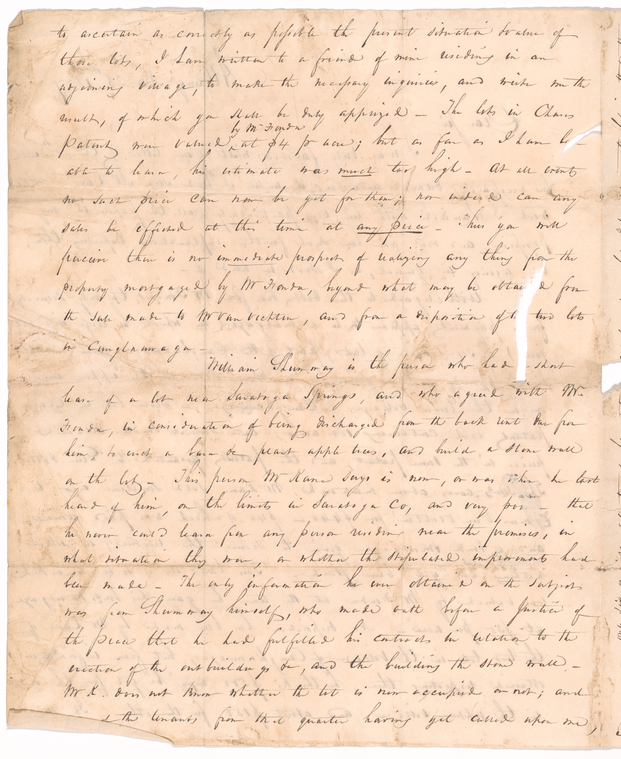 to ascertain as correctly as possible the present situation & value of
those lots, I have written to a friend of mine residing in an
adjoining village, to make the necessary inquiries, and write me the
result, of which you shall be duly apprized – The lots in
Patent were valued by Mr Fonda at $4 pr acre; but as far as I have
able to learn, his estimate was much too high – At all events
no such price can now be got for them; nor indeed can any
sales be effected at this time at any price – Thus you will
perceive there is no immediate prospect of realizing any thing from the
property mortgaged by Mr Fonda, beyond what may be obtained from
the sale made to Mr Van Vechten, and from a disposition of the two lots
in Caughnawaga –
William Shumway is the person who had a short
lease of a lot near Saratoga Springs, and who agreed with Mr
Fonda, in consideration of being discharged from the back rent due from
him, to erect a barn & plant apple trees, and build a stone wall
on the lot – This person Mr Kane says is now, or was when he last
heard of him, on the limits in Saratoga Co, and very poor – that
he never could learn from any person residing near the premises, in
what situation they were, or whether the stipulated improvements had
been made – The only information he ever obtained on the subject
was from Shumway himself, who made oath before a Justice of
the peace that he had fulfilled his contracts in relation to the
erection of the outbuildings &c, and the building the stone wall –
Mr K. does not know whether the lot is now occupied or not; and
the tenants from that quarter having yet called upon me,